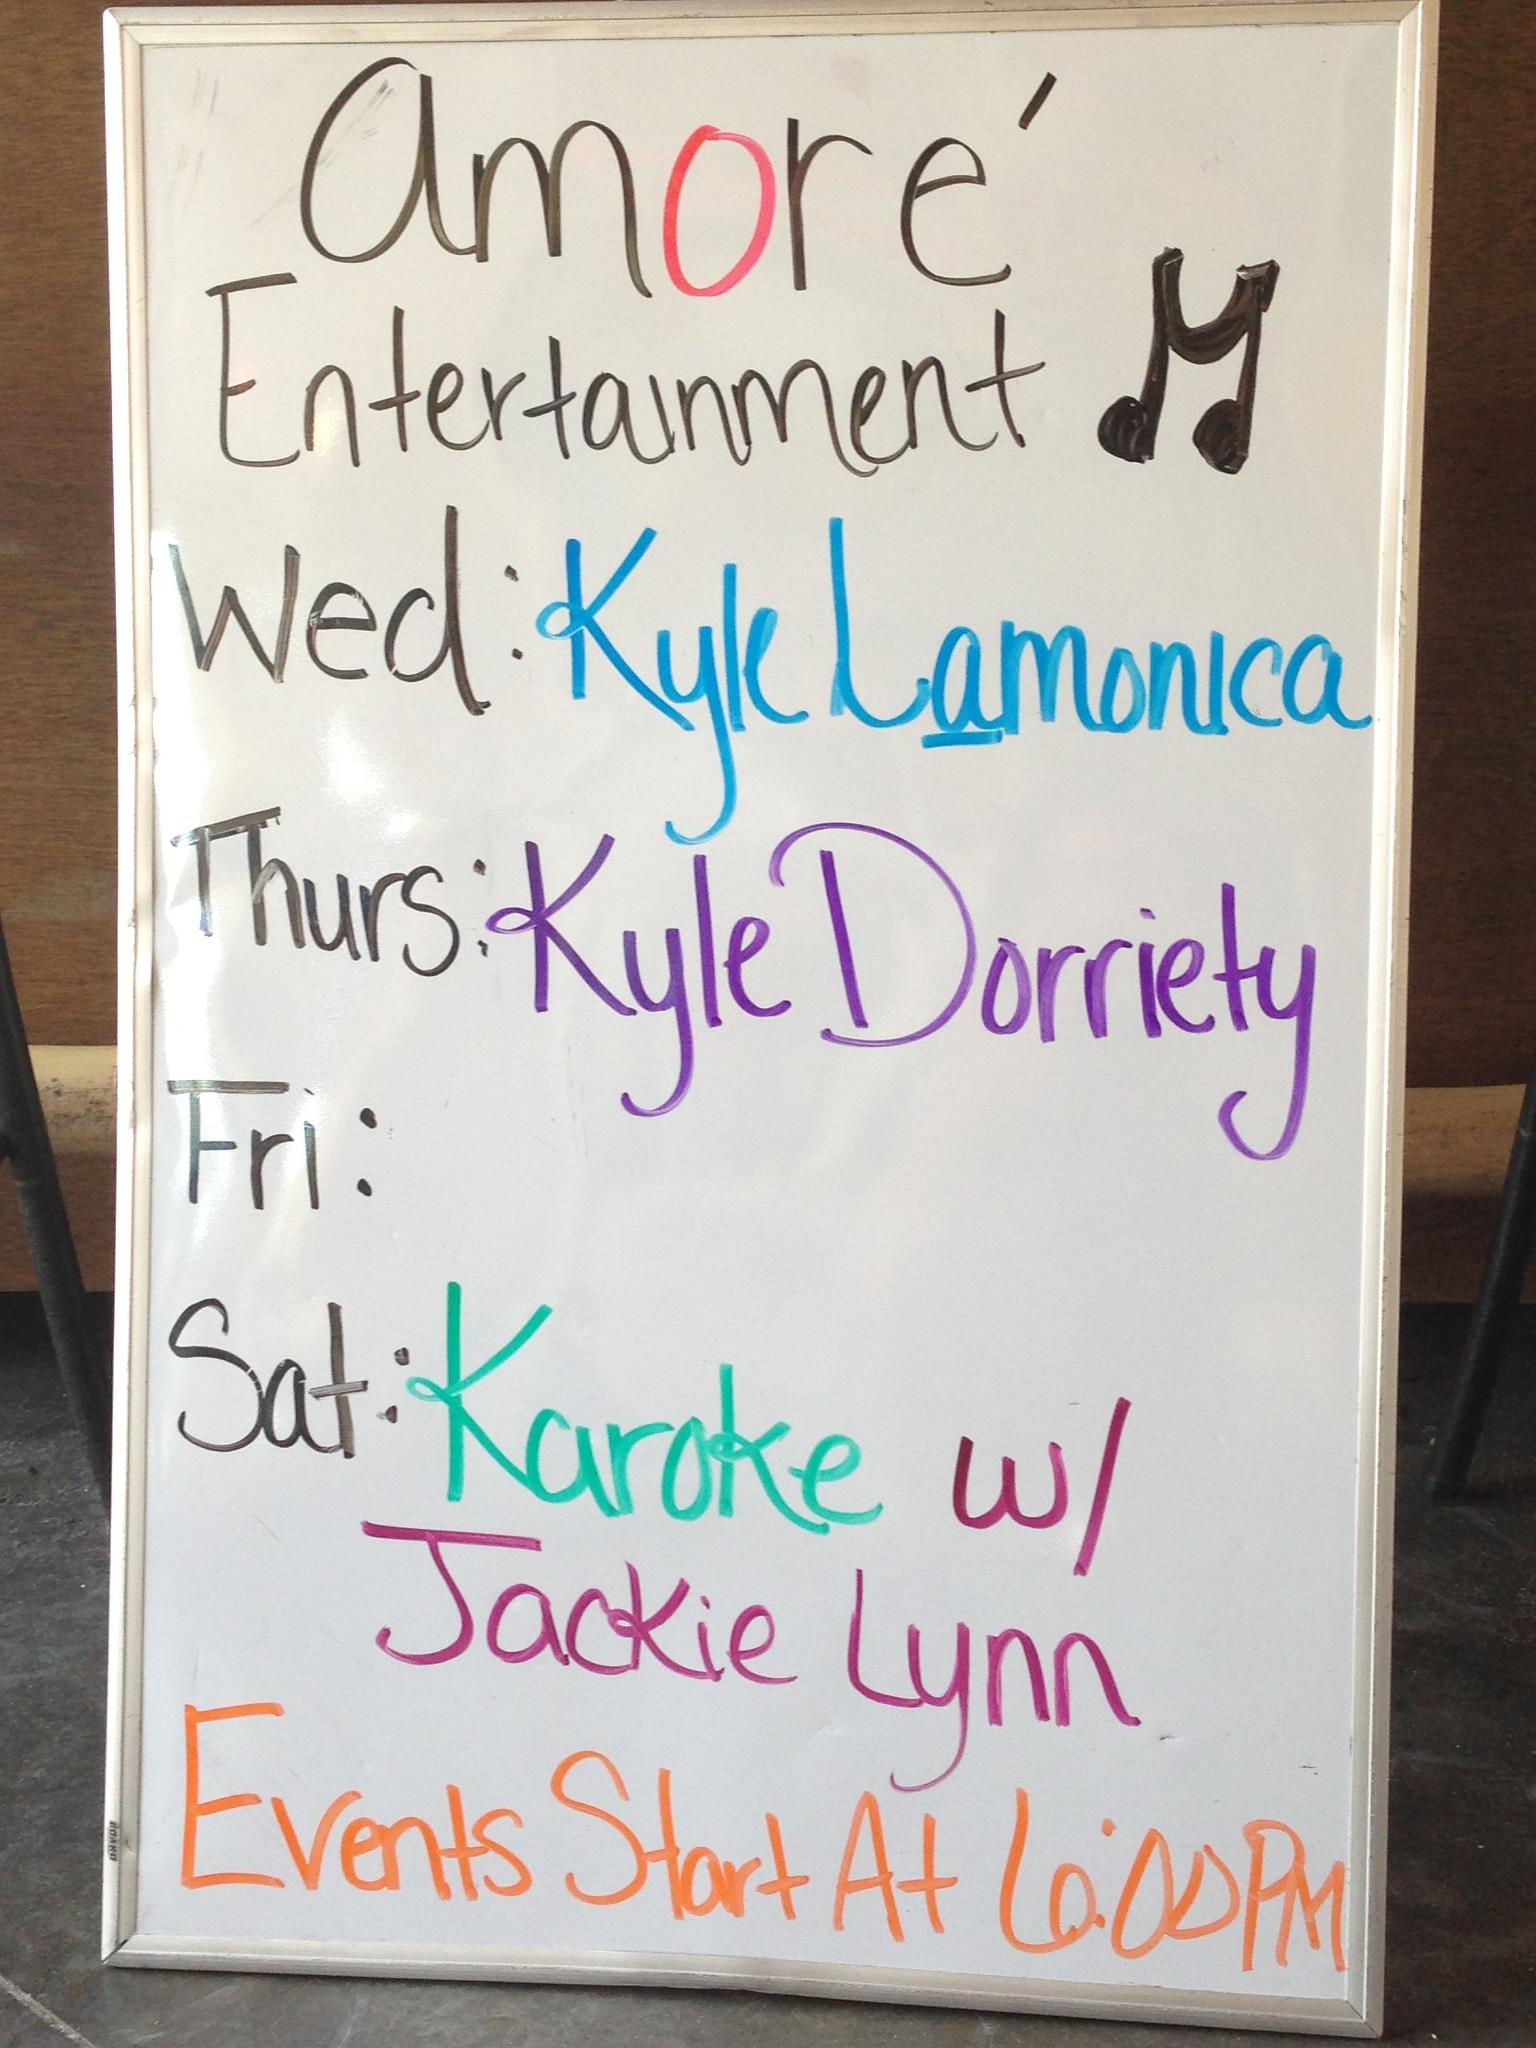 Amoré
Entertainment
Wed: Kyle Lamonica
Thurs: Kyle Dorriety
Fri:
Sat: Karoke w/
Jackie Lynn
Events Start At 6:00PM
BOARD